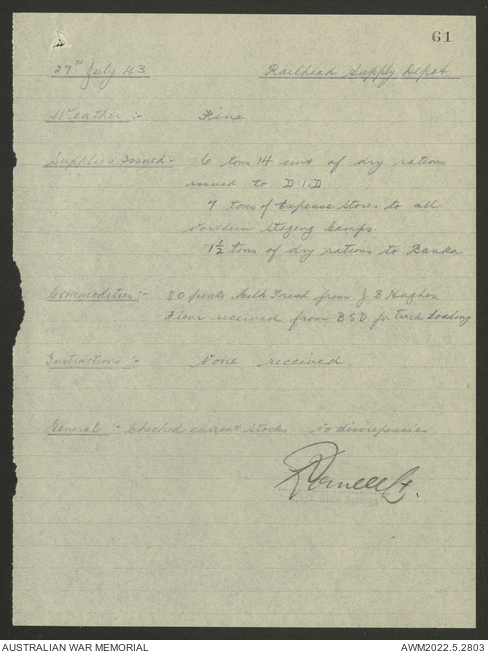 61
27th July 43 Railhead Supply Depot
Weather :- Fine
Supplies Issued :- 6 tons 14 cwt of dry rations
issued to D I.D
7 tons of Expense Stores to all
Northern Staging Camps
1½ tons of dry rations to Banka
Commodities :- 80 Milk Fresh from J B Hughes
Flour received from B S D. for Track Loading
Instructions :- None received
General :- Checked current stocks No discrepancies
AUSTRALIAN WAR MEMORIAL AWM2022.5.2803